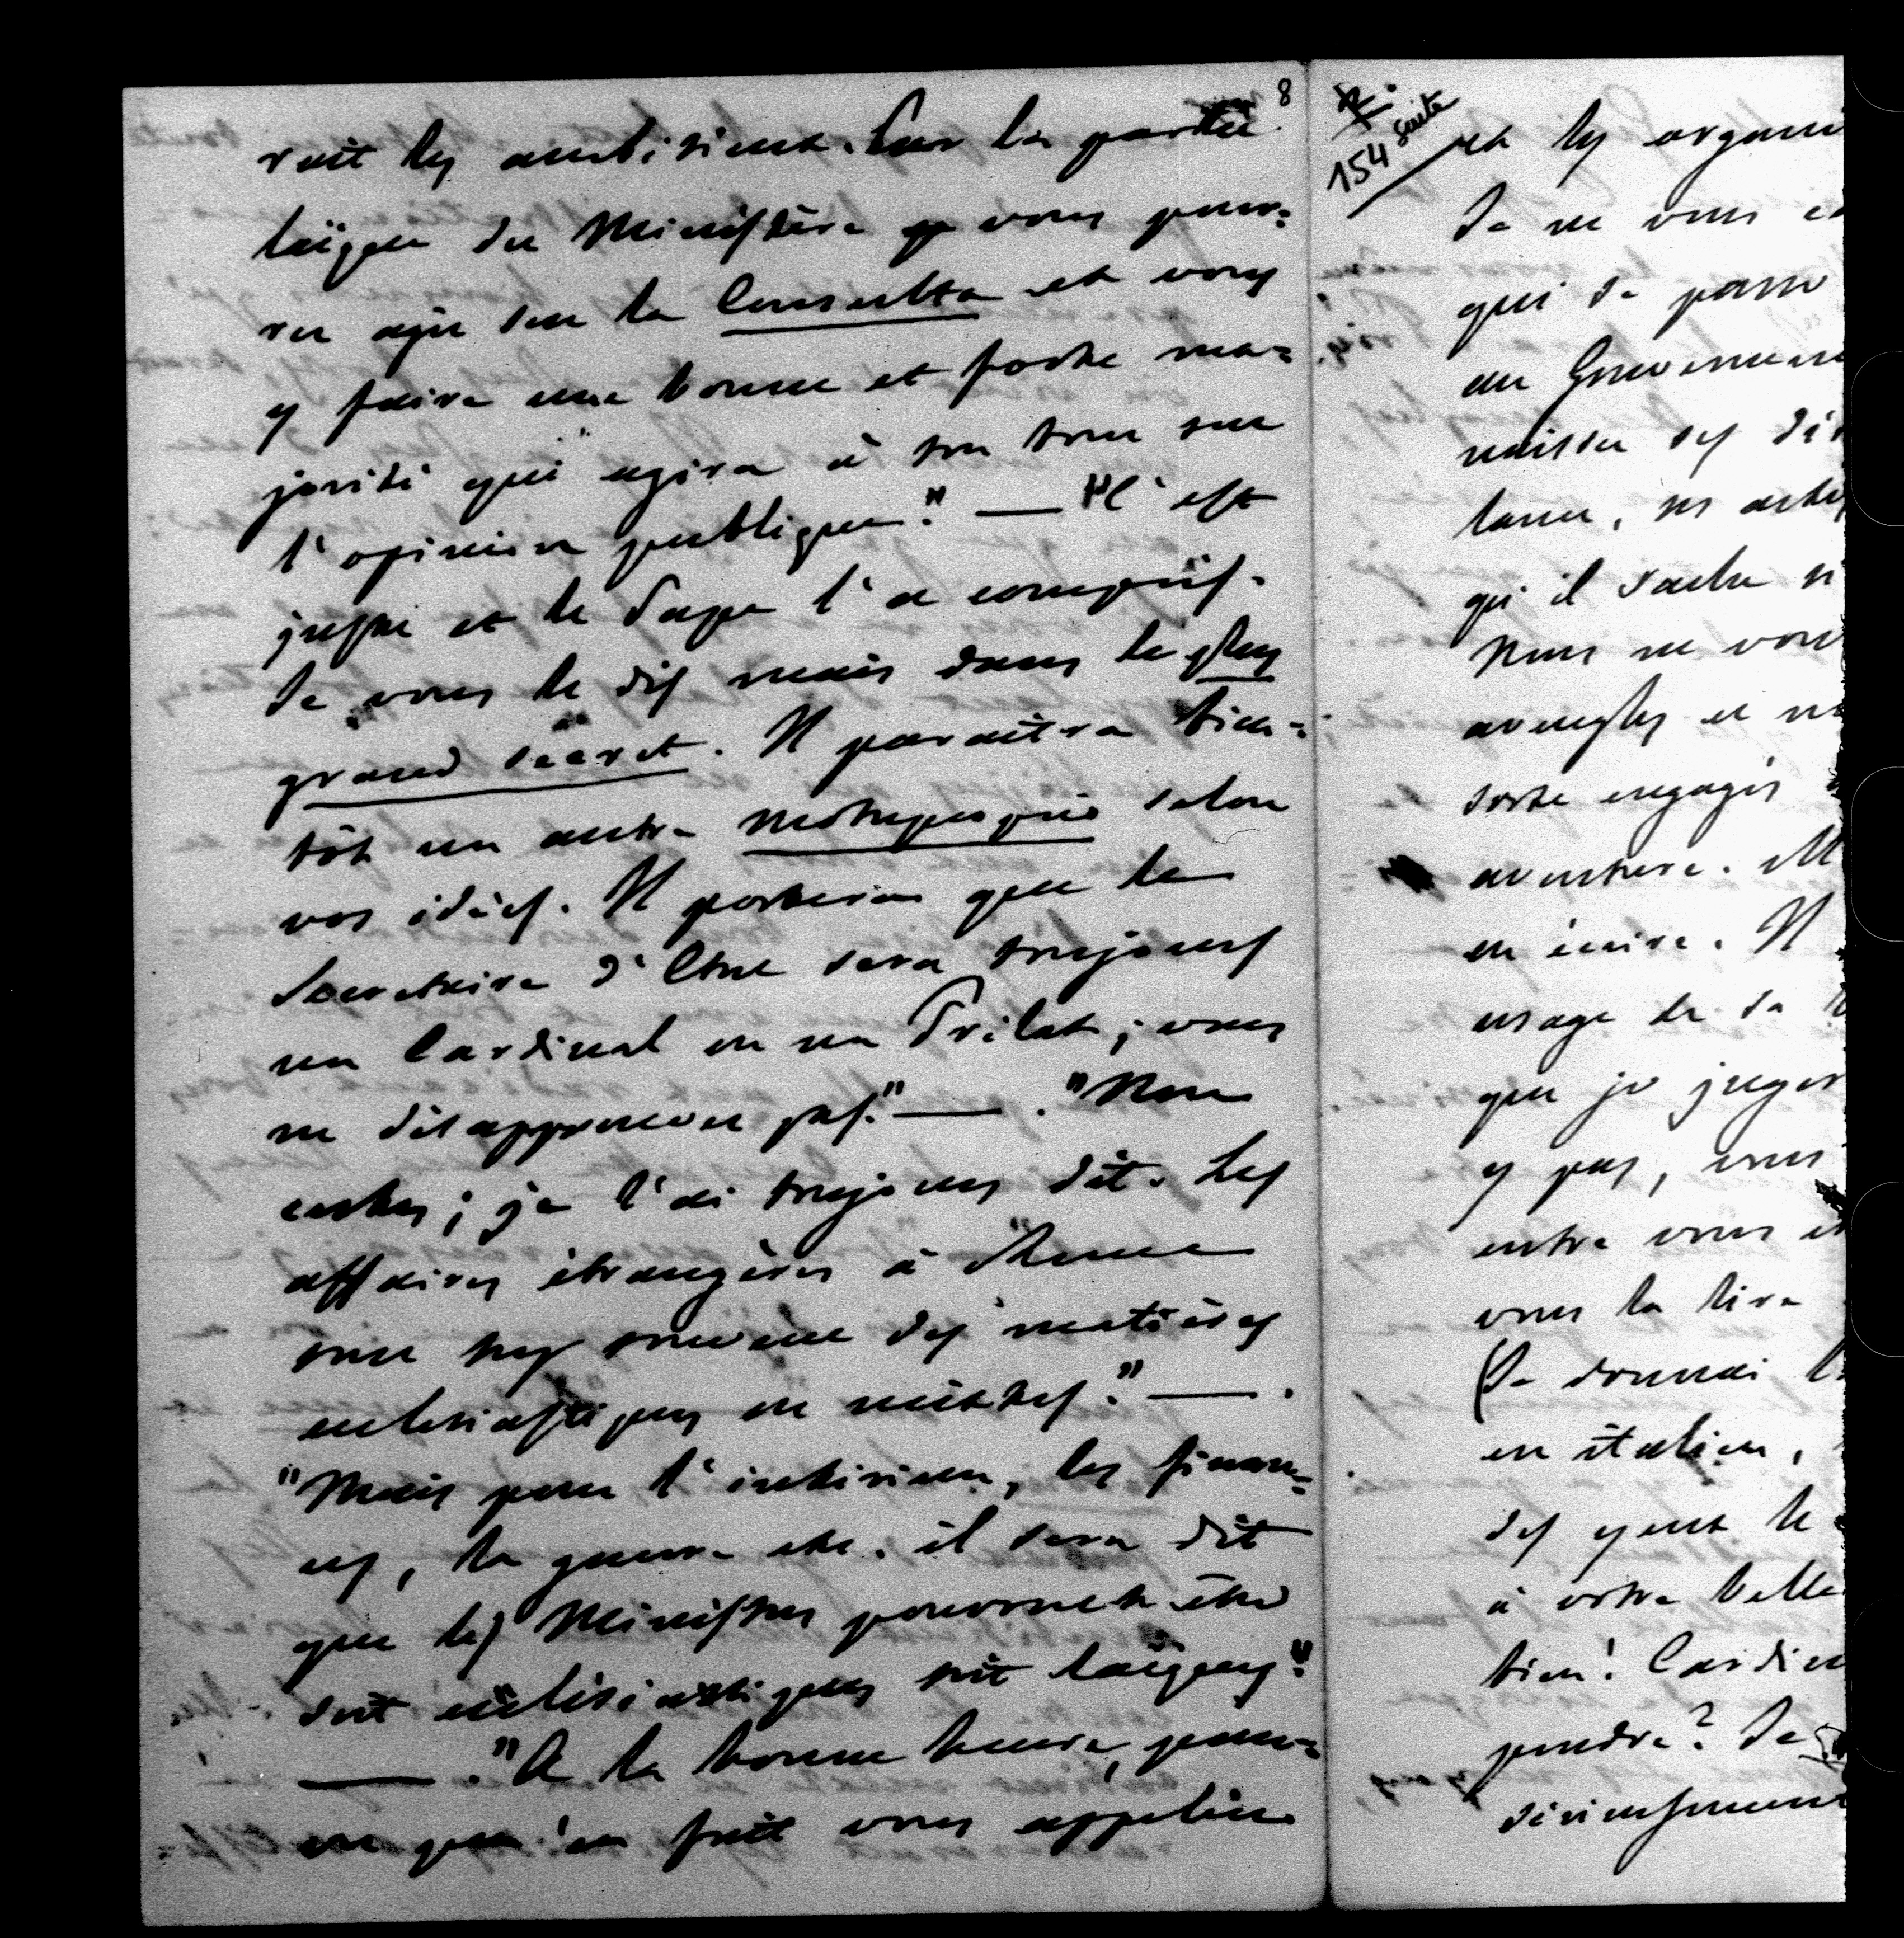 8
roit les ambitieux. Par la partie
laïque du Ministère vous pour=
rez agir sur la Consulta et vous
y faire une bonne et forte ma=
jorité qui agira à son tour sur
l'opinion publique." — "C'est
juste et le Pape l'a compris.
Je vous le dis mais dans le plus
grand secret. Il paraîtra bien=
tôt un autre Motuproprio selon
vos idées. Il portera que le
Secretaire d'Etat sera toujours
un Cardinal ou un Prélat; vous
ne désapprouvez pas." — . "Non
certes; je l'ai toujours dit. Les
affaires étrangères à Rome
sont trop souvent des matières
ecclésiastiques ou mixtes." — .
"Mais pour l'intérieur, les finan=
ces, la guerre etc. il sera dit
que les Ministres pourront être
soit ecclésiastiques soit laïques."
— . "A la bonne heure, pour=
vu qu'en fait vous appeliez
154 suite
et les organi
Je ne vous
qui se passe
au Gouverneme
naisse ses
lance, ses actes
qu'il sache
Nous ne vou
aveugles et
sorte engagés
aventure.
en écrire. Il
usage de sa
que je juger
y pas, vous
entre vous et
vous la lire
(Je donnai
en italien,
des yeux le
à votre belle
bien! Cardin
pondre? Je